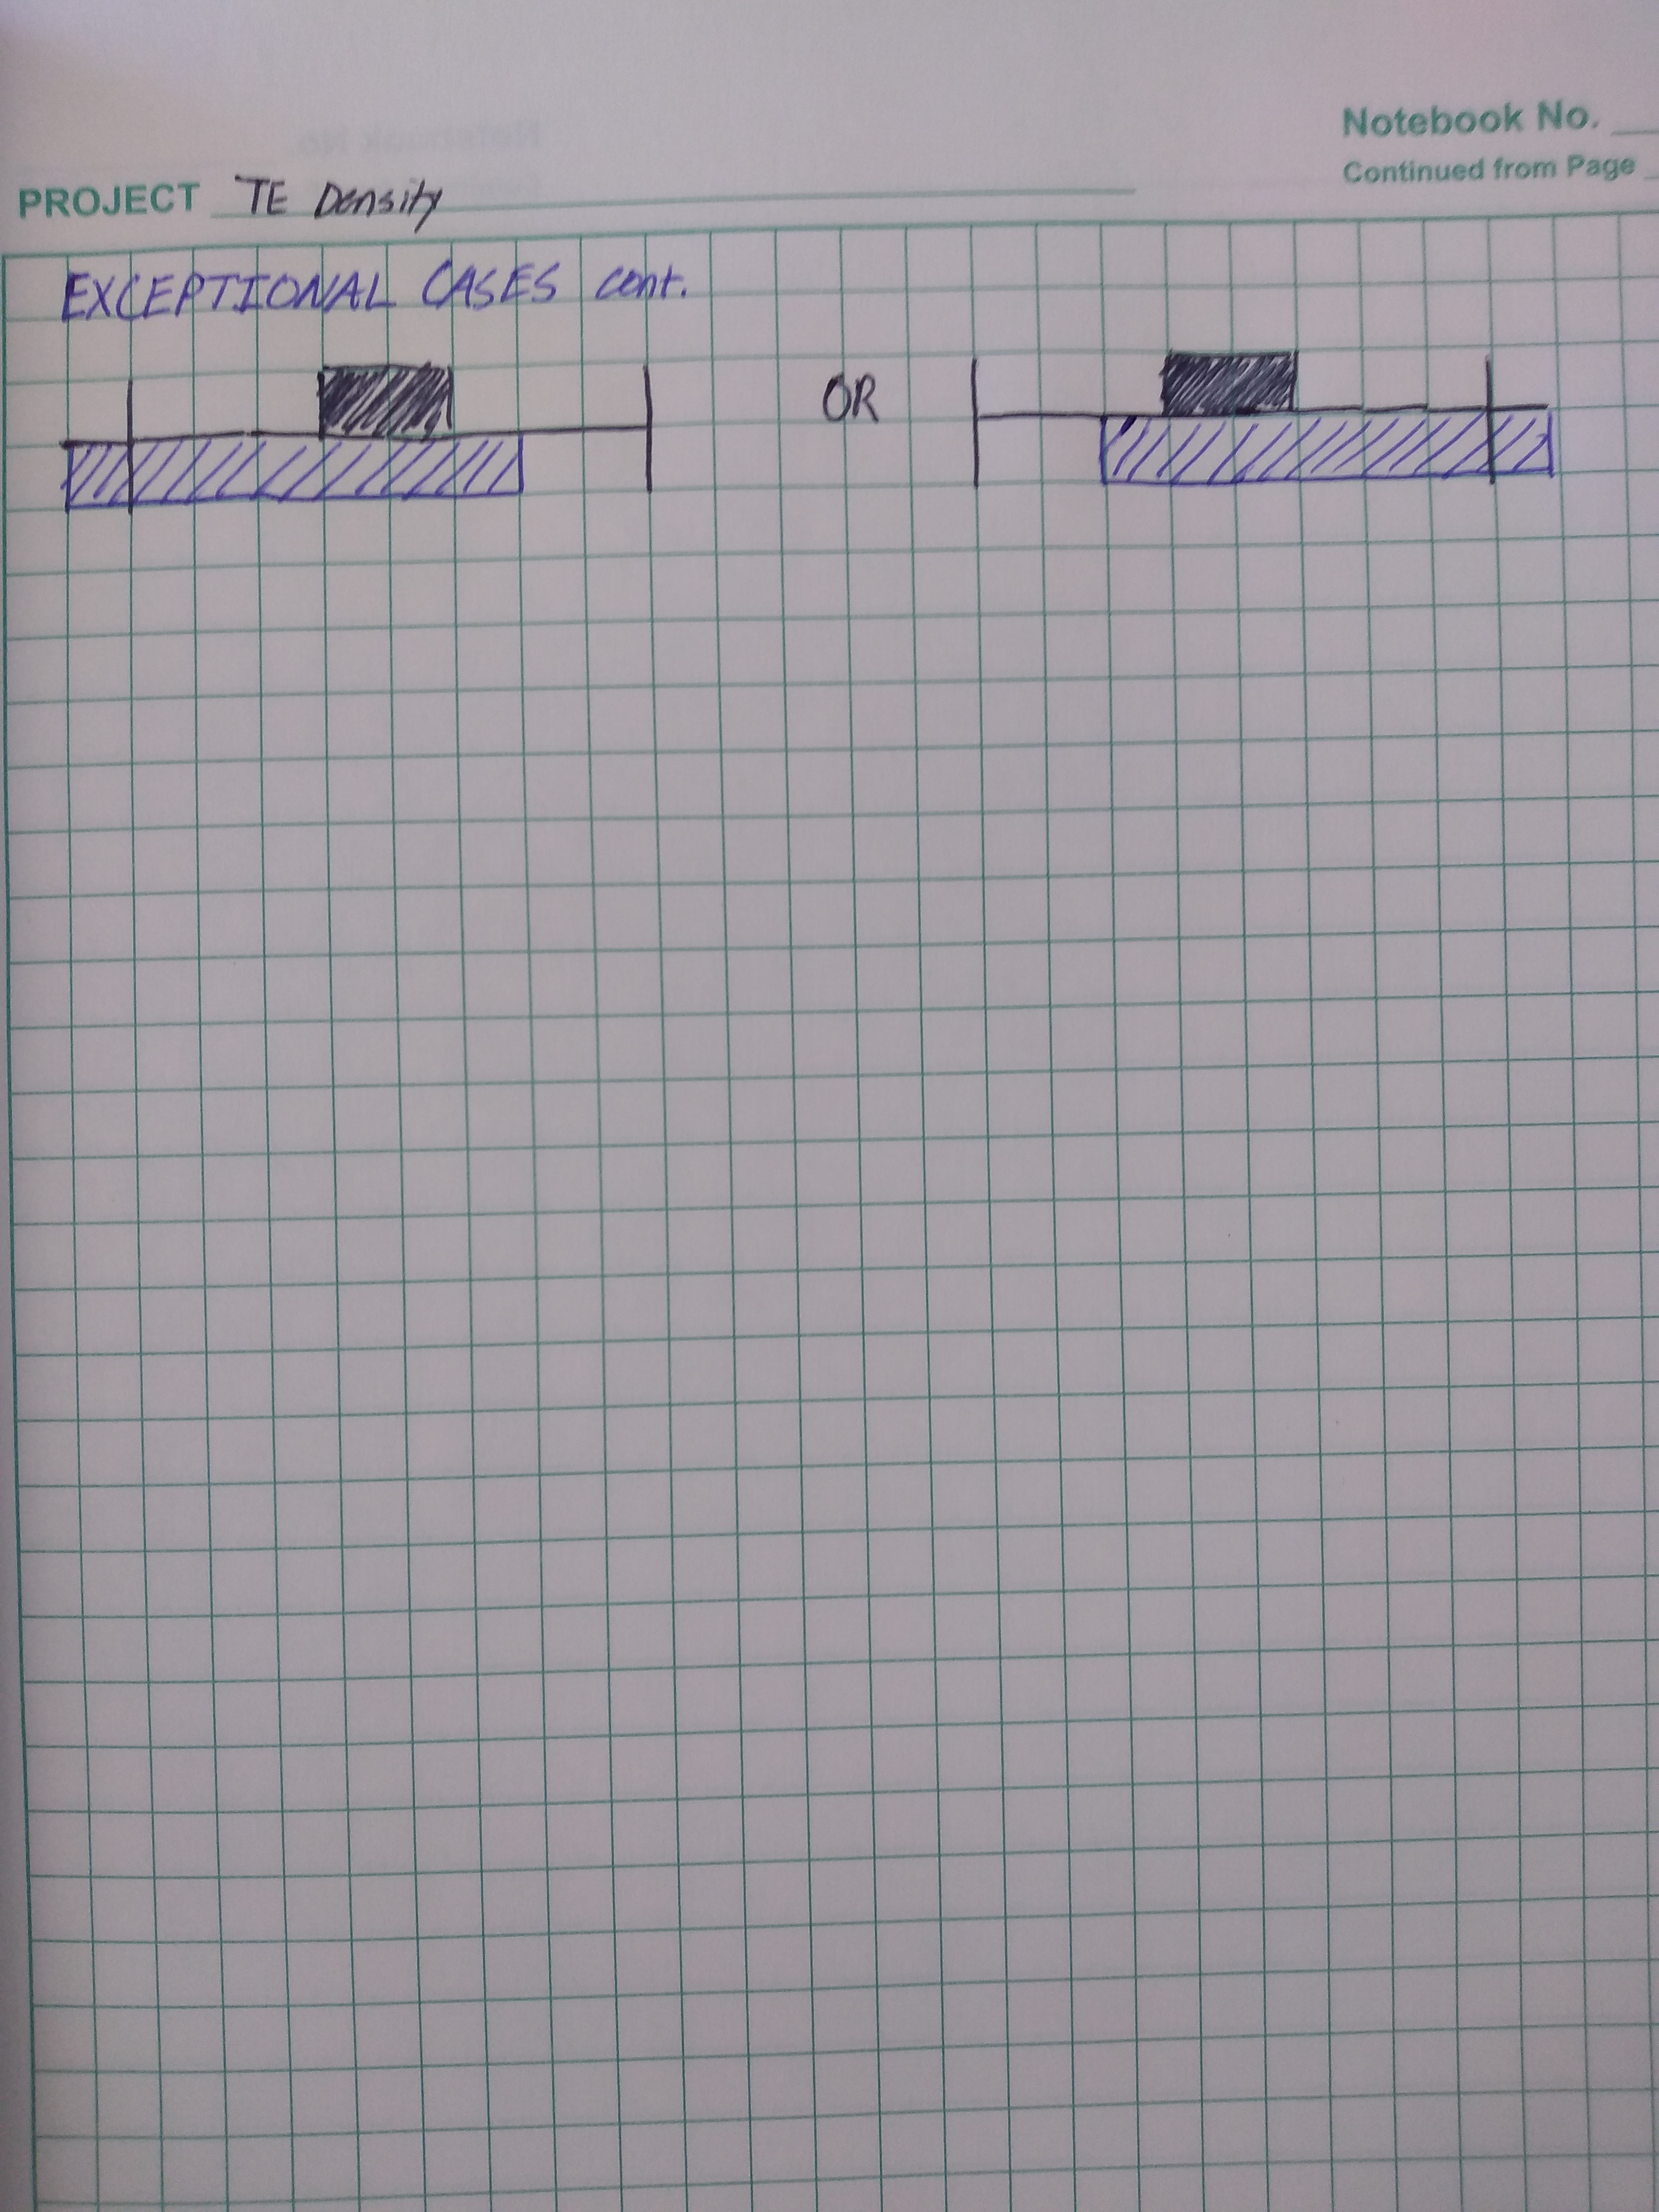 Notebook No.
Continued from Page
PROJECT TE Density
EXCEPTIONAL CASES cont.
OR